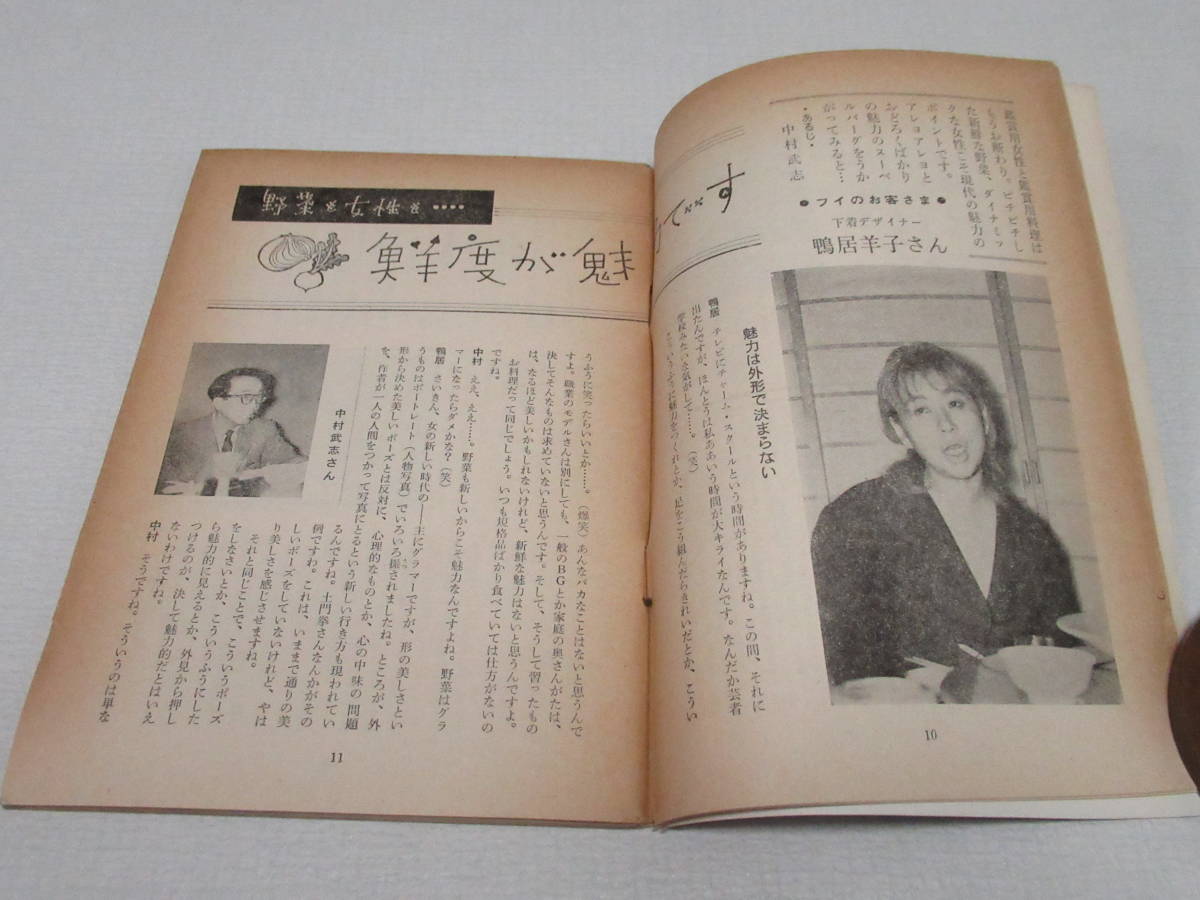 鑑賞用女性と鑑賞用料理は
もうお断わり。ピチピチし
た新鮮な野菜、ダイナミッ
クな女性こそ現代の魅力の
ポイントです。
アレヨアレヨと
おどろくばかり
の魅力のスーペ
ルバーグをうか
がってみると…
・あるじ・
中村武志
●フイのお客さま●
下着デザイナー
鴨居羊子さん
です
魅力は外形で決まらない
鴨居 テレビにチャーム・スクールという時間がありますね。この間、それに
出たんですが、ほんとうは私ああいう時間が大キライなんです。なんだか芸者
学校みたいな気がして……。（笑）
こういうふうに魅力をつくれとか、足をこう組んだらきれいだとか、こうい
10
鮮度が魅
うふうに笑ったらいいとか……。（爆笑）あんなバカなことはないと思うんで
すよ。職業のモデルさんは別にしても、一般のBGとか家庭の奥さんがたは、
決してそんなものは求めていないと思うんです。そして、そうして習ったもの
は、なるほど美しいかもしれないけれど、新鮮な魅力はないと思うんですよ。
お料理だって同じでしょう。いつも規格品ばかり食べていては仕方がないの
ですね。
中村 ええ、ええ……。野菜も新しいからこそ魅力なんですよね。野菜はグラ
マーになったらダメかな？（笑）
鴨居 さいきん、女の新しい時代の――主にグラマーですが、形の美しさとい
うものはポートレート（人物写真）でいろいろ撮されましたね。ところが、外
形から決めた美しいポーズとは反対に、心理的なものとか、心の中味の問題
を、作者が一人の人間をつかって写真にとるという新しい行き方も現われてい
るんですね。土門拳さんなんかがその
例ですわ。これは、いままで通りの美
しいポーズをしていないけれど、やは
り美しさを感じさせますね。
それと同じことで、こういうポーズ
をしなさいとか、こういうふうにした
ら魅力的に見えるとか、外見から押し
つけるのが、決して魅力的だとはいえ
ないわけですね。
中村 そうですね。そういうのは単な
中村武志さん
11